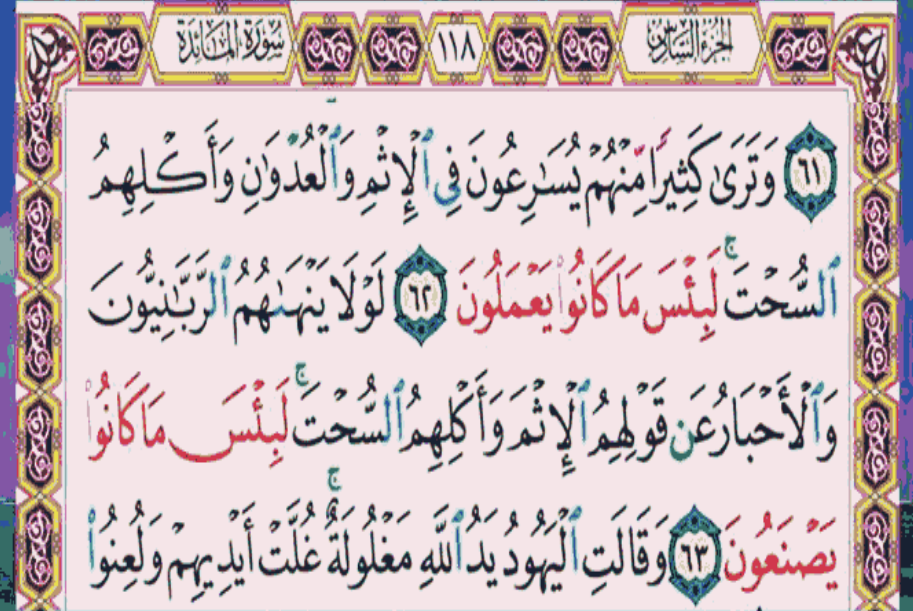 الجزء السادس ١١٨ سورة المائدة
۝٦١ وَتَرَىٰ كَثِيرًا مِّنْهُمْ يُسَٰرِعُونَ فِى ٱلْإِثْمِ وَٱلْعُدْوَٰنِ وَأَكْلِهِمُ
ٱلسُّحْتَ ۚ لَبِئْسَ مَا كَانُوا۟ يَعْمَلُونَ ۝٦٢ لَوْلَا يَنْهَىٰهُمُ ٱلرَّبَّٰنِيُّونَ
وَٱلْأَحْبَارُ عَن قَوْلِهِمُ ٱلْإِثْمَ وَأَكْلِهِمُ ٱلسُّحْتَ ۚ لَبِئْسَ مَا كَانُوا۟
يَصْنَعُونَ ۝٦٣ وَقَالَتِ ٱلْيَهُودُ يَدُ ٱللَّهِ مَغْلُولَةٌ ۚ غُلَّتْ أَيْدِيهِمْ وَلُعِنُوا۟